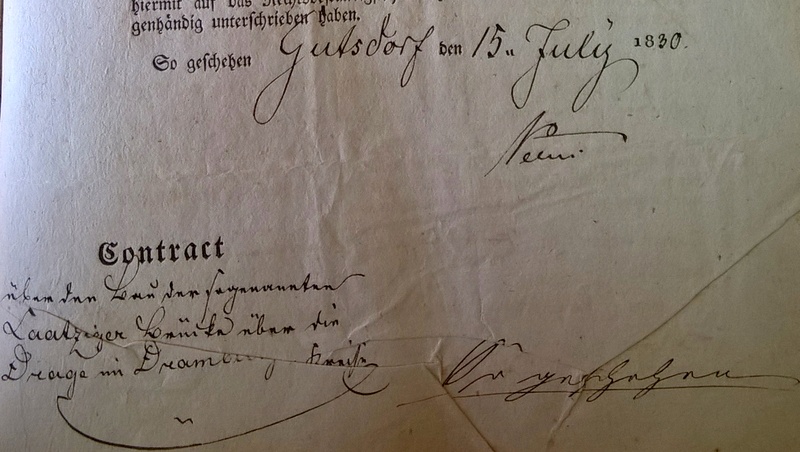 hiermit auf das
genhändig unterschrieben haben.
So geschehen Gutsdorf den 15n July 1830.
Contract
über den Bau der sogenannten
Laatziger Brücke über die
Drage im Dramburg Kreise
So geschehen